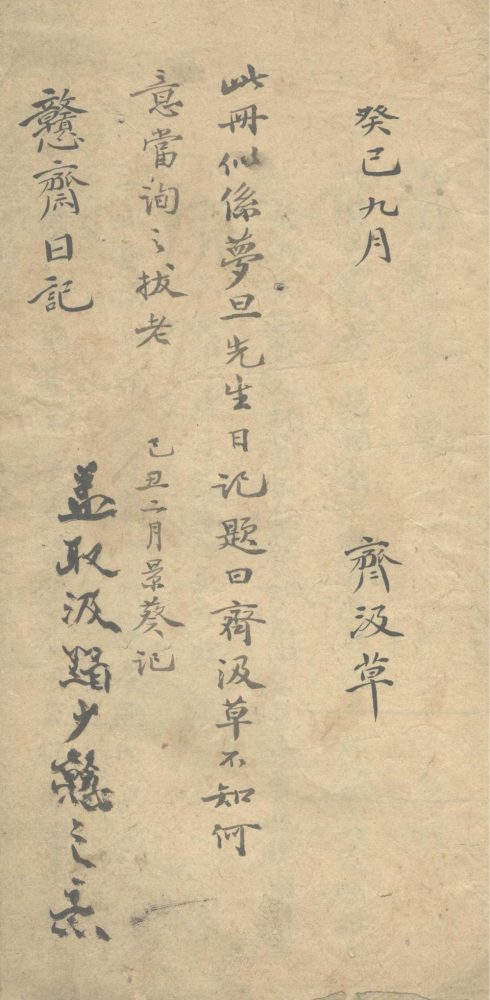 癸巳九月 齊汲草
此冊似係夢旦先生日記題曰齊汲草不知何
意當詢之拔老 己丑二月景葵記
戇齋日記 蓋取汲黯少戇之意